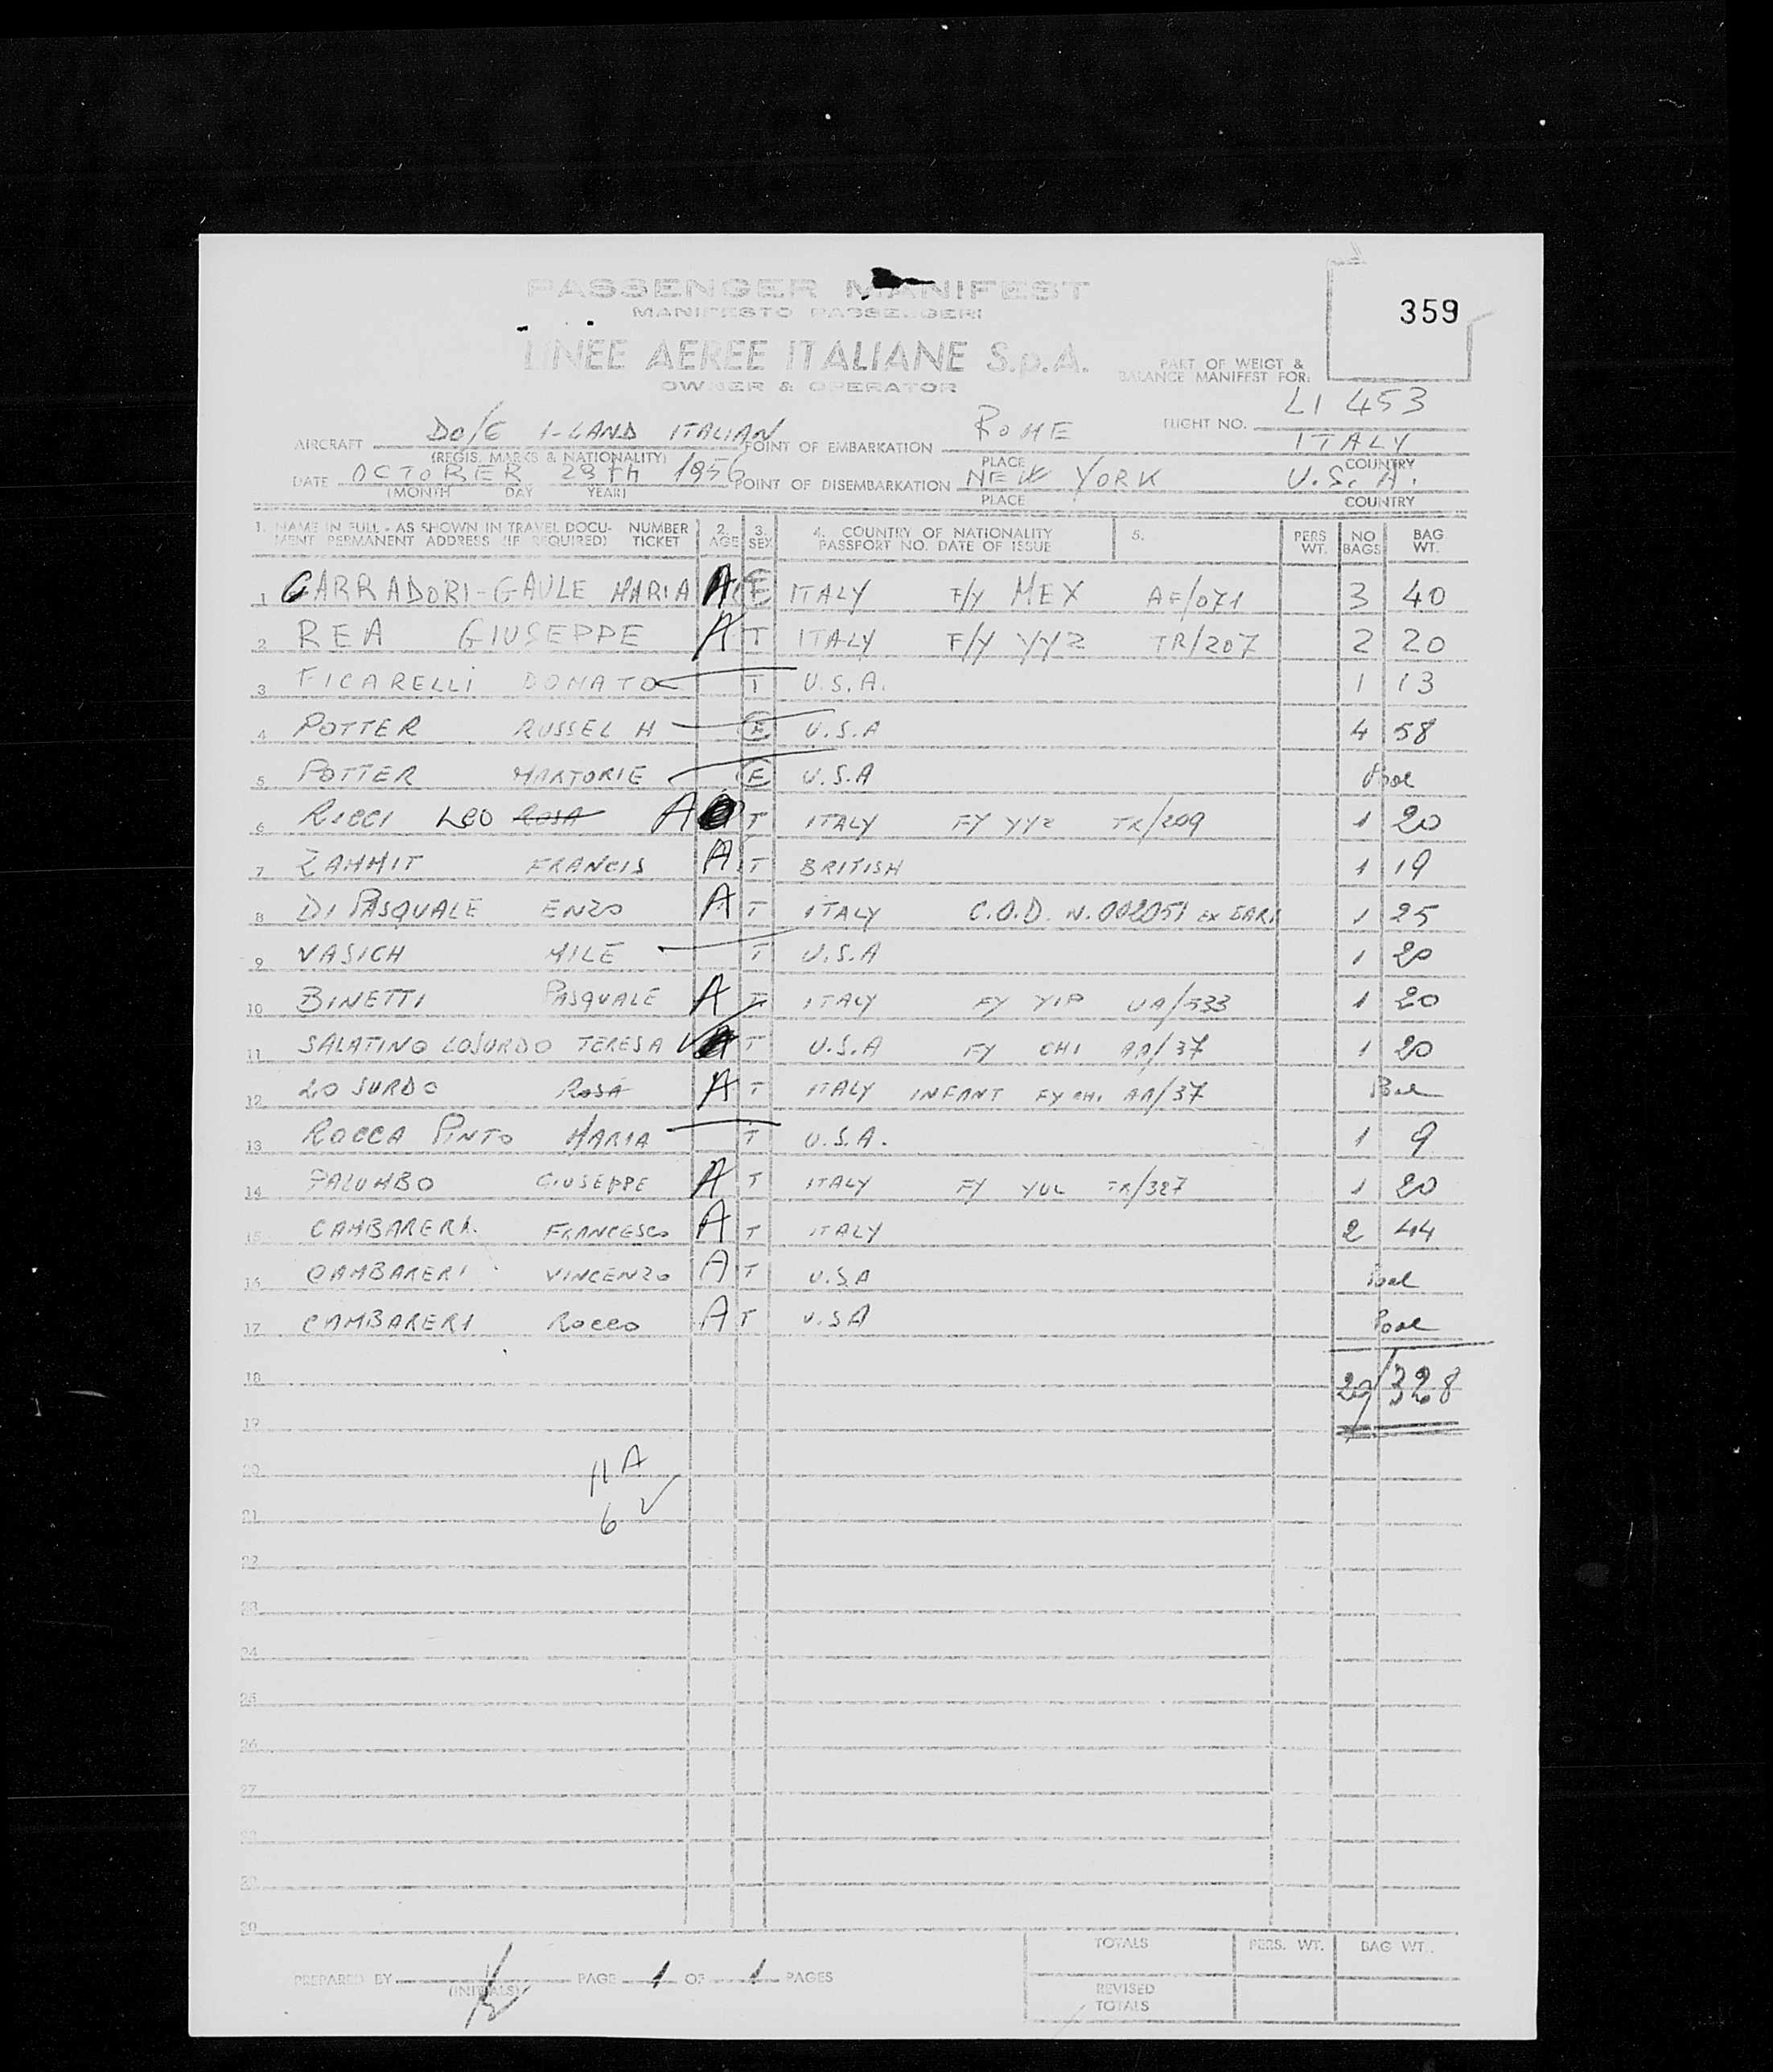 PASSENGER MANIFEST
MANIFESTO PASSEGGERI
359
LINEE AEREE ITALIANE S.p.A.
OWNER & OPERATOR
PART OF WEIGT &
BALANCE MANIFEST FOR:
AIRCRAFT DO/6 I-LAND ITALIAN POINT OF EMBARKATION ROME FLIGHT NO. LI 453
ITALY
(REGIS. MARKS & NATIONALITY) PLACE COUNTRY
DATE OCTOBER 28TH 1956 POINT OF DISEMBARKATION NEW YORK U.S.A.
(MONTH DAY YEAR) PLACE COUNTRY
1. NAME IN FULL - AS SHOWN IN TRAVEL DOCU- NUMBER 2. 3. 4. COUNTRY OF NATIONALITY 5. PERS NO BAG
MENT PERMANENT ADDRESS (IF REQUIRED) TICKET AGE SEX PASSPORT NO. DATE OF ISSUE WT. BAGS WT.
1 CARRADORI-GAULE MARIA A F ITALY F/Y MEX AF/071 3 40
2 REA GIUSEPPE A T ITALY F/Y YYZ TR/207 2 20
3 FICARELLI DONATO T U.S.A. 1 13
4 POTTER RUSSEL H F U.S.A 4 58
5 POTTER MARJORIE F U.S.A Pool
6 RICCI LEO ROSA A T ITALY FY YYZ TR/209 1 20
7 ZAMMIT FRANCIS A T BRITISH 1 19
8 DI PASQUALE ENZO A T ITALY C.O.D. N. 002051 EX BARI 1 25
9 VASICH MILE T U.S.A 1 20
10 BINETTI PASQUALE A T ITALY FY YIP UA/533 1 20
11 SALATINO LOSURDO TERESA A T U.S.A FY CHI AA/37 1 20
12 LO SURDO ROSA A T ITALY INFANT FY CHI AA/37 Pool
13 ROCCA PINTO MARIA T U.S.A. 1 9
14 PALUMBO GIUSEPPE A T ITALY FY YUL TR/327 1 20
15 CAMBARERI FRANCESCO A T ITALY 2 44
16 CAMBARERI VINCENZO A T U.S.A Pool
17 CAMBARERI ROCCO A T U.S.A Pool
18 20/328
19
20 11 A
21 6 ✓
22
23
24
25
26
27
28
29
30
TOTALS PERS. WT. BAG WT.
PREPARED BY PAGE 1 OF 1 PAGES
(INITIALS)
REVISED
TOTALS